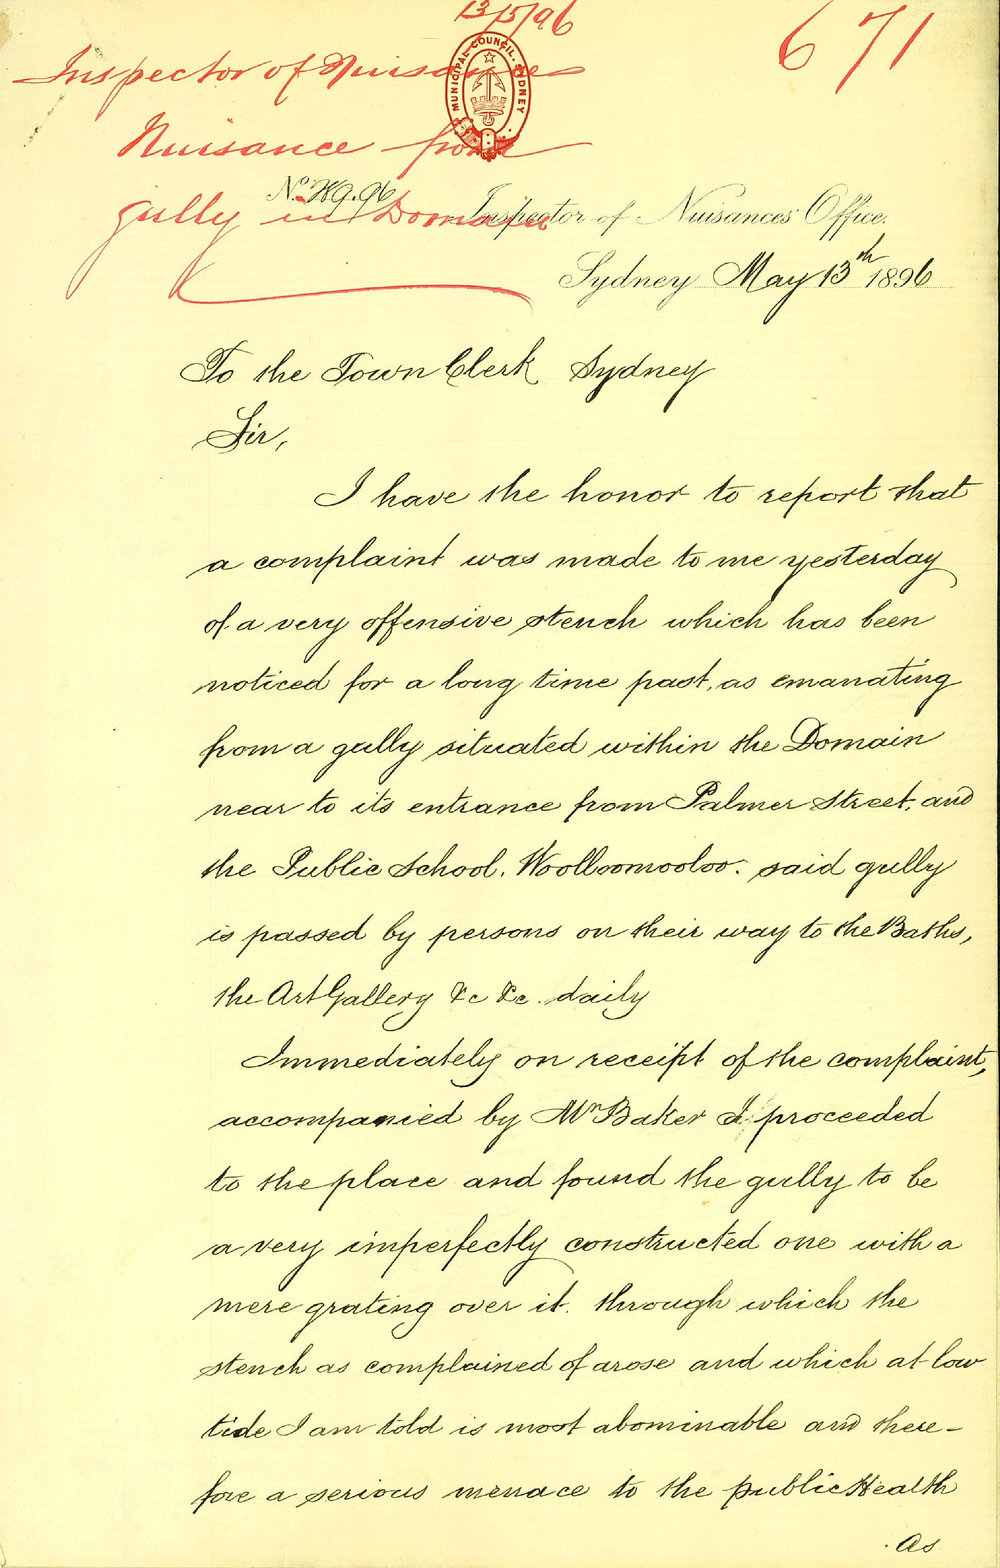 13/5/96
671
Inspector of Nuisances
MUNICIPAL COUNCIL. SYDNEY
Nuisance from
gully in Domain
No. 89.96 Inspector of Nuisances' Office.
Sydney May 13th 1896
To the Town Clerk Sydney
Sir,
I have the honor to report that
a complaint was made to me yesterday
of a very offensive stench which has been
noticed for a long time past, as emanating
from a gully situated within the Domain
near to its entrance from Palmer Street, and
the Public School, Woolloomooloo. said gully
is passed by persons on their way to the Baths,
the Art Gallery &c &c. daily
Immediately on receipt of the complaint,
accompanied by Mr Baker I proceeded
to the place and found the gully to be
a very imperfectly constructed one with a
mere grating over it. through which the
stench as complained of arose and which at low
tide I am told is most abominable and there-
fore a serious menace to the public Health
As